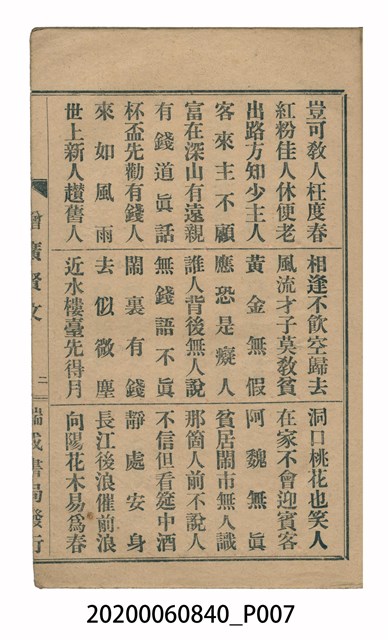 豈可敎人枉度春 相逢不飮空歸去 洞口桃花也笑人
紅粉佳人休便老 風流才子莫敎貧 在家不會迎賓客
出路方知少主人 黃金無假 阿魏無眞
客來主不顧 應恐是癡人 貧居鬧市無人識
富在深山有遠親 誰人背後無人說 那箇人前不說人
有錢道眞話 無錢語不眞 不信但看筵中酒
杯盃先勸有錢人 鬧裏有錢 靜處安身
來如風雨 去似微塵 長江後浪催前浪
世上新人趲舊人 近水樓臺先得月 向陽花木易爲春
增廣賢文 二 瑞成書局發行
20200060840_P007